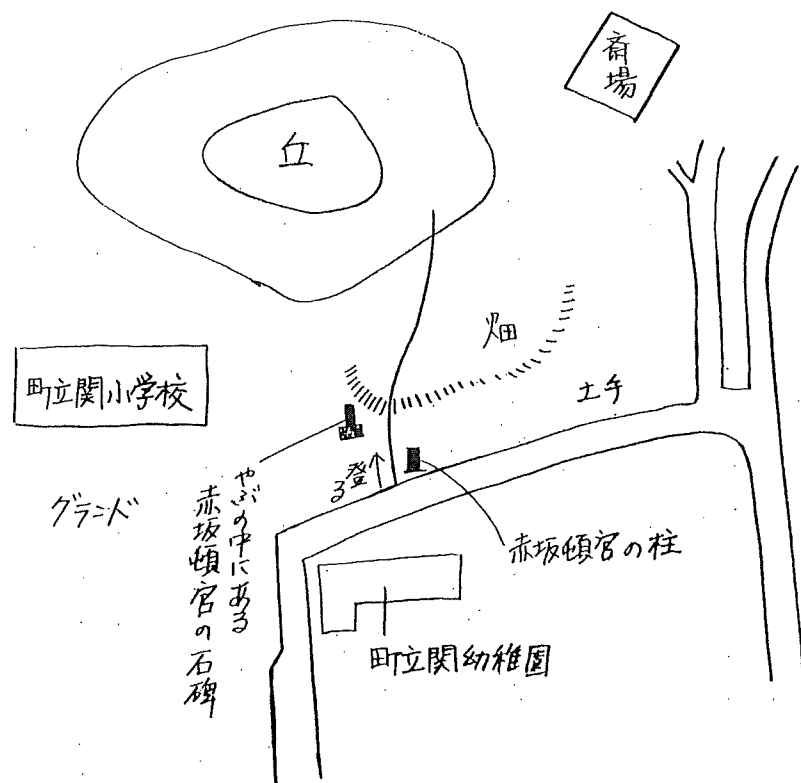 斎場
丘
畑
町立関小学校
土手
登る
グランド
やぶの中にある
赤坂頓宮の石碑
赤坂頓宮の柱
町立関幼稚園